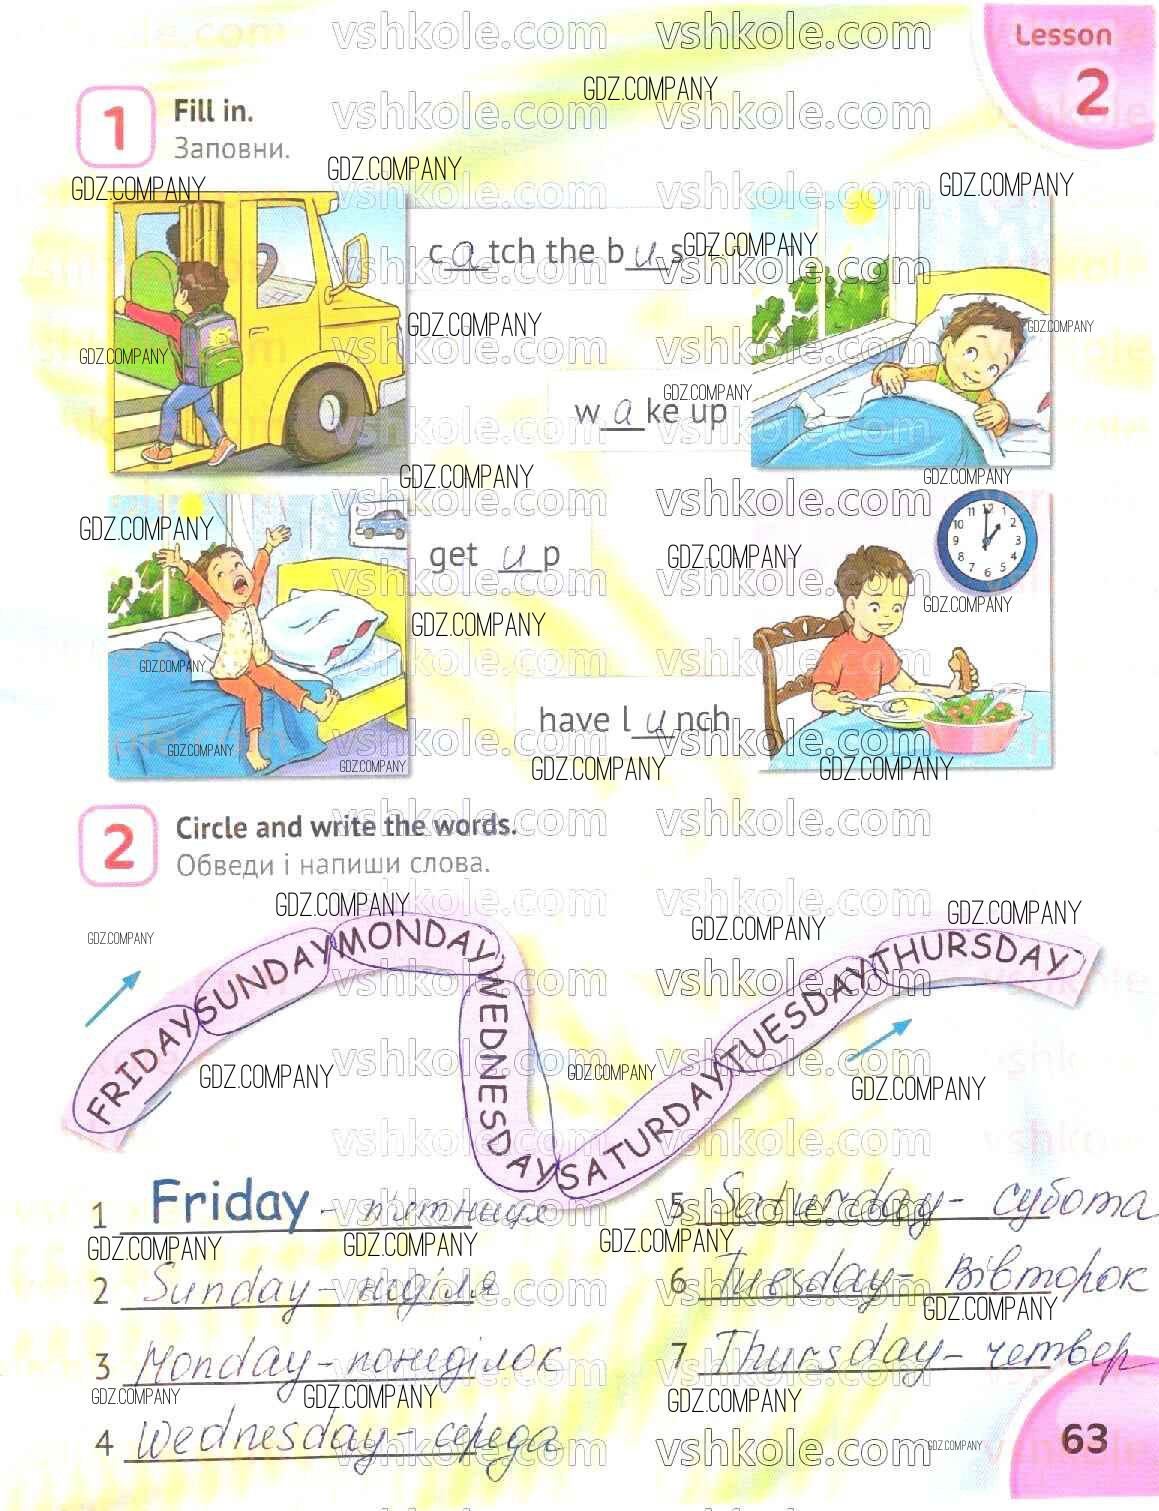 Lesson
2
1 Fill in.
Заповни.
catch the bus
wake up
get up
have lunch
2 Circle and write the words.
Обведи і напиши слова.
FRIDAYSUNDAYMONDAYWEDNESDAYSATURDAYTUESDAYTHURSDAY
1 Friday - п'ятниця
2 Sunday - неділя
3 Monday - понеділок
4 Wednesday - середа
5 Saturday - субота
6 Tuesday - вівторок
7 Thursday - четвер
63
vshkole.com
GDZ.COMPANY